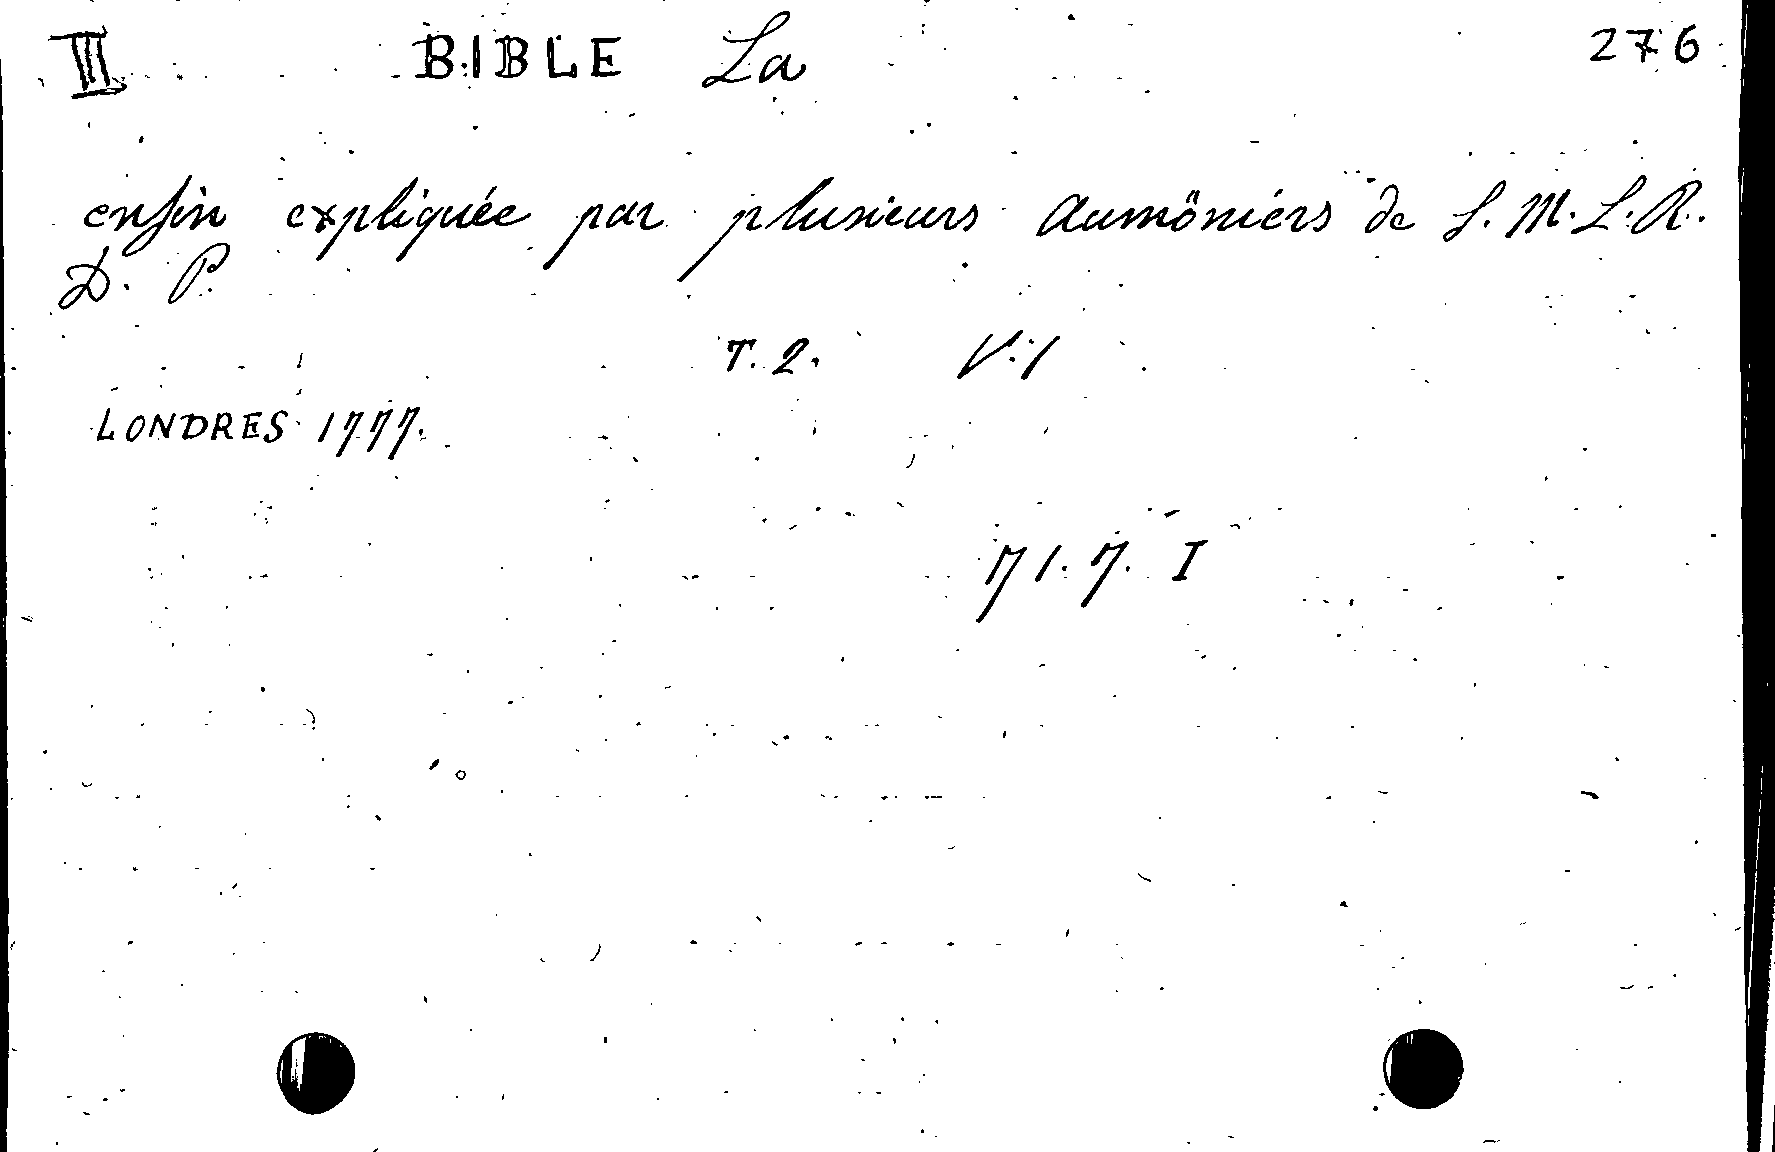 III BIBLE La 276
enfin expliquée par plusieurs aumôniers de S. M. L. R.
D. P.
T. 2. V. 1
LONDRES 1777.
71. 7. I